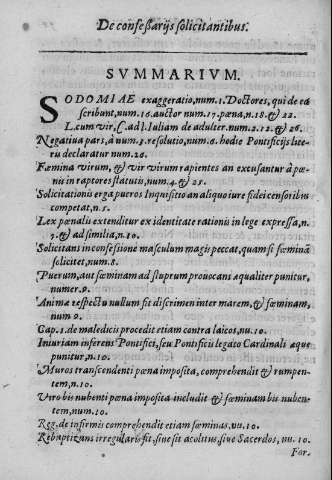 De confeßarijs solicitantibus.
SVMMARIVM.
SODOMIAE exaggeratio, num. 1. Doctores, qui de ea
scribunt, num. 16. auctor num. 17. pœna, n. 18. & 22.
L. cum vir, C. ad l. Iuliam de adulter. num. 2. 12. & 26.
Negatiua pars, à num. 3. resolutio, num. 6. hodie Pontificijs literis
declaratur num. 26.
Fœmina virum, & vir virum rapientes an excusantur à pœnis
in raptores statutis, num. 4. & 25.
Solicitationis erga pueros Inquisitio an aliquo iure fidei censoribus
competat, n. 5.
Lex pœnalis extenditur ex identitate rationis in lege expressa, n.
7. & ad similia, n. 10.
Solicitans in confessione masculum magis peccat, quam si fœminã
solicitet, num. 8.
Puerum, aut fœminam ad stuprum prouocans æqualiter punitur,
numer. 9.
Animæ respectu nullum sit discrimen inter marem, & fœminam,
num 9.
Cap. 1. de maledicis procedit etiam contra laicos, nu. 10.
Iniuriam inferens Pontifici, seu Pontificis legato Cardinali æque
punitur, n. 10.
Muros transcendenti pœna imposita, comprehendit & rumpentem,
n. 10.
Viro bis nubenti pœna imposita includit & fœminam bis nubentem,
num. 10.
Reg. de infirmis comprehendit etiam fœminas, nu. 10.
Rebaptizans irregularis fit, siue sit acolitus, siue Sacerdos, nu. 10.
For.